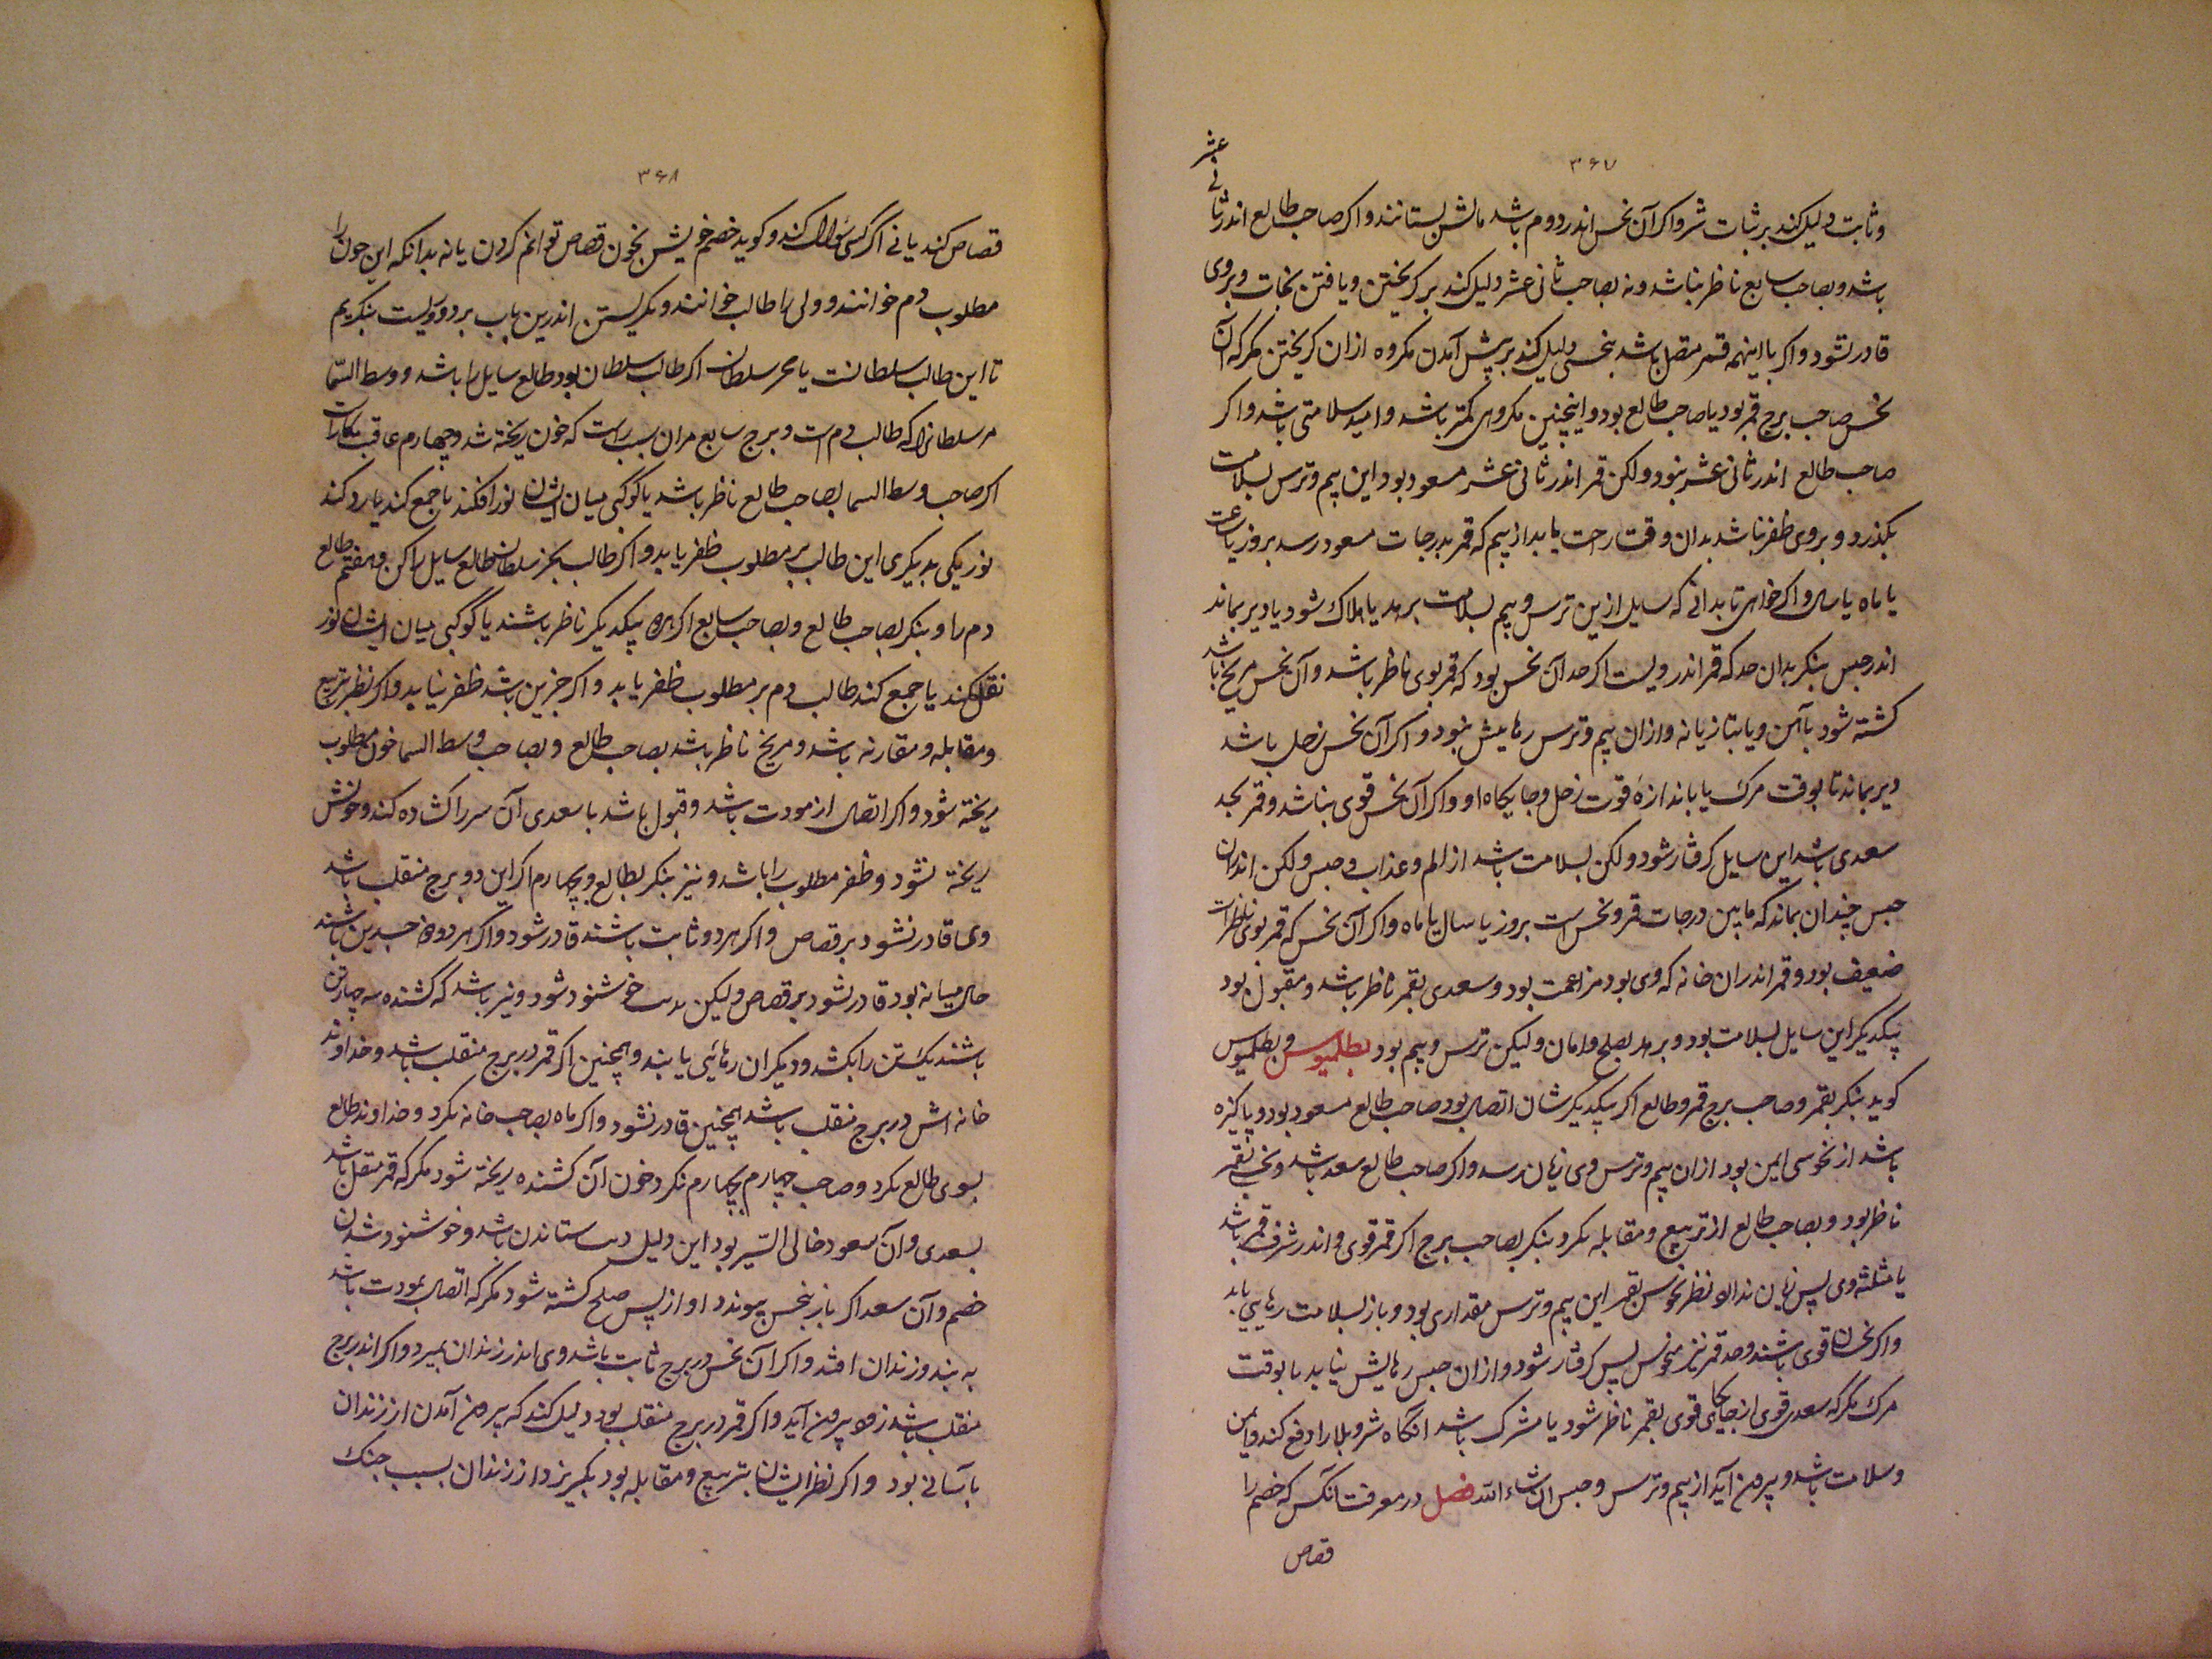 ۳۶۷
عشر
و ثابت دلیل کند بر ثبات شر و اکر آن نحس اندر دوم باشد مالش بستانند و اکر صاحب طالع اندر ثانی
باشد و بصاحب سابع ناظر نباشد و نه بصاحب ثانی عشر دلیل کند بر کریختن و یافتن نجات و بر وی
قادر نشود و اکر با اینهمه قمر متصل باشد بنحسی دلیل کند بر پیش آمدن مکروه از ان کریختن مکر که آن
نحس صاحب برج قمر بود یا صاحب طالع بود و اینچنین مکروهی کمتر باشد و امید سلامتی باشد و اکر
صاحب طالع اندر ثانی عشر نبود ولکن قمر اندر ثانی عشر مسعود بود این بیم و ترس بسلامت
بکذرد و بروی ظفر نباشد بدان وقت راحت یابد از بیم که قمر بدرجات مسعود رسد بروز یا ساعت
یا ماه یا سال و اکر خواهی تا بدانی که سایل ازین ترس و بیم بسلامت برهد یا هلاک شود یا دیر بماند
اندر حبس بنکر بدان حد که قمر اندر ویست اکر حد آن نحس بود که قمر بوی ناظر باشد و آن نحس مریخ باشد
کشته شود بآهن و یا بتازیانه و ازان بیم و ترس رهایش نبود و اکر آن نحس زحل باشد
دیر بماند تا بوقت مرک یا باندازهٔ قوت زحل و جایکاه او و اکر آن نحس قوی نباشد و قمر بحد
سعدی باشد این سایل کرفتار شود ولکن بسلامت باشد از الم و عذاب و حبس ولکن اندران
حبس چندان بماند که مابین درجات قمر و نحس است بروز یا سال یا ماه و اکر آن نحس که قمر بوی ناظر است
ضعیف بود و قمر اندران خانه که وی بود مزاعمت بود و سعدی بقمر ناظر باشد و مقبول بود
بیکدیکر این سایل بسلامت بود و برهد بصلح و امان ولیکن ترس و بیم بود بطلمیوس و بطلمیوس
کوید بنکر بقمر و صاحب برج قمر و طالع اکر بیکدیکرشان اتصال بود صاحب طالع مسعود بود و پاکیزه
باشد از نحوسی ایمن بود ازان بیم و ترس وی زیان نرسد و اکر صاحب طالع سعد باشد و نحسی بقمر
ناظر بود و بصاحب طالع از تربیع و مقابله نکرد بنکر بصاحب برج اکر قمر قوی و اندر شرف قمر باشد
یا مثلثه وی پس زیان ندارد نظر نحوس بقمر این بیم و ترس مقداری بود و باز بسلامت رهایی یابد
و اکر نحسان قوی باشند و حد قمر نیز منحوس پس کرفتار شود و ازان حبس رهایش نیابد تا بوقت
مرک مکر که سعدی قوی از جایکاهی قوی بقمر ناظر شود یا مشرک باشد انکاه شر و بلا را دفع کند و ایمن
و سلامت باشد و بیرون آید از بیم و ترس و حبس ان شاء الله فصل در معرفت آنکس که خصم را
قصاص
۳۶۸
قصاص کند یا نی اگر کسی سؤال کند و کوید خصم خویش بخون قصاص توانم کردن یا نه بدانکه این خون را
مطلوب دم خوانند و ولی را طالب خوانند و نکریستن اندرین باب بر دو رویست بنکریم
تا این طالب سلطانست یا بجز سلطان اکر طالب سلطان بود طالع سایل را باشد و وسط السّما
مر سلطانرا که طالب دم است و برج سابع مران سبب راست که خون ریخته شد و چهارم عاقبت مکاراست
اکر صاحب وسط السما بصاحب طالع ناظر باشد یا کوکبی میان ایشان نور افکند یا جمع کند یا رد کند
نور یکی بدیکری این طالب بر مطلوب ظفر یابد و اکر طالب بجز سلطان طالع سایل را کن و هفتم طالع
دم را و بنکر بصاحب طالع و بصاحب سابع اکر هردو بیکدیکر ناظر باشند یا کوکبی میان ایشان نور
نقل کند یا جمع کند طالب دم بر مطلوب ظفر یابد و اکر جز این باشد ظفر نیابد و اکر نظر تربیع
و مقابله و مقارنه باشد و مریخ ناظر باشد بصاحب طالع و بصاحب وسط السما خون مطلوب
ریخته شود و اکر اتصال از مودت باشد و قبول باشد با سعدی آن سر را کشاده کند و خونش
ریخته نشود و ظفر مطلوب را باشد و نیز بنکر بطالع و بچهارم اکر این دو برج منقلب باشد
وی قادر نشود بر قصاص و اکر هر دو ثابت باشند قادر شود و اکر هردو ذو جسدین باشند
حال میانه بود قادر نشود بر قصاص ولیکن بدست خوشنود شود و نیز باشد که کشنده سه چهار تن
باشند یک تن را بکشد و دیکران رهائی یابند و همچنین اکر قمر در برج منقلب باشد و خداوند
خانه اش در برج منقلب باشد همچنین قادر نشود و اکر ماه بصاحب خانه نکرد و خداوند طالع
بسوی طالع نکرد و صاحب چهارم بچهارم نکرد خون آن کشنده ریخته شود مکر که قمر متصل باشد
بسعدی و آن سعود خالی السّیر بود این دلیل دیت ستاندن باشد و خوشنود شدن
خصم و آن سعد اکر باز بنحس پیوندد او از پس صلح کشته شود مکر که اتصال بمودت باشد
به بند و زندان افتد و اکر آن نحس در برج ثابت باشد وی اندر زندان بمیرد و اکر اندر برج
منقلب باشد زود بیرون آید و اکر قمر در برج منقلب بود دلیل کند که بیرون آمدن از زندان
بآسانی بود و اکر نظر ایشان بتربیع و مقابله بود بکریزد از زندان بسبب جنک